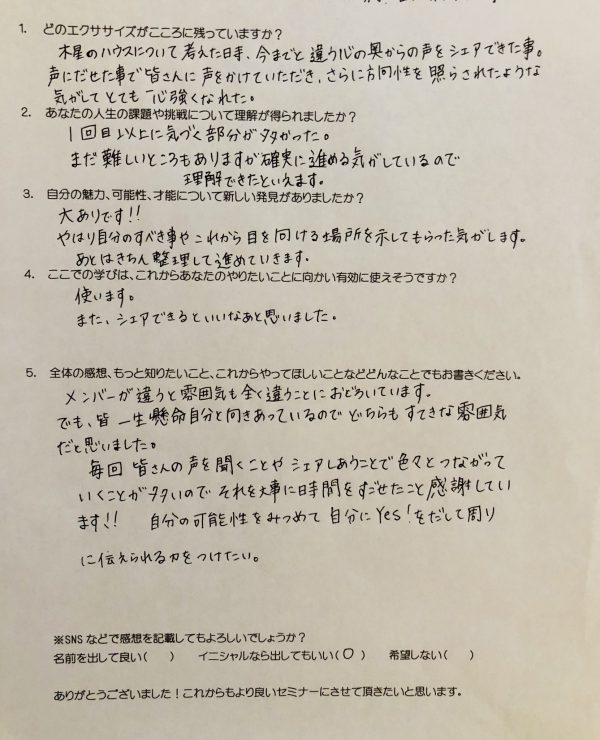 1. どのエクササイズがこころに残っていますか?
木星のハウスについて考えた日寺、今までと違う心の奥からの声をシェアできた事。
声にだせた事で皆さんに声をかけていただき、さらに方向性を照らされたような
気がしてとても心強くなれた。
2. あなたの人生の課題や挑戦について理解が得られましたか?
1回目以上に気づく部分が多かった。
まだ難しいところもありますが確実に進める気がしているので
理解できたといえます。
3. 自分の魅力、可能性、才能について新しい発見がありましたか?
大ありです!!
やはり自分のすべき事やこれから目を向ける場所を示してもらった気がします。
あとはきちん整理して進めていきます。
4. ここでの学びは、これからあなたのやりたいことに向かい有効に使えそうですか?
使います。
また、シェアできるといいなあと思いました。
5. 全体の感想、もっと知りたいこと、これからやってほしいことなどどんなことでもお書きください。
メンバーが違うと雰囲気も全く違うことにおどろいています。
でも、皆一生懸命自分と向きあっているのでどちらもすてきな雰囲気
だと思いました。
毎回皆さんの声を聞くことやシェアしあうことで色々とつながって
いくことが多いのでそれを大事に時間をすごせたこと感謝してい
ます!! 自分の可能性をみつめて自分にYes!をだして周り
に伝えられる力をつけたい。
※SNSなどで感想を記載してもよろしいでしょうか?
名前を出して良い( ) イニシャルなら出してもいい(○) 希望しない( )
ありがとうございました!これからもより良いセミナーにさせて頂きたいと思います。